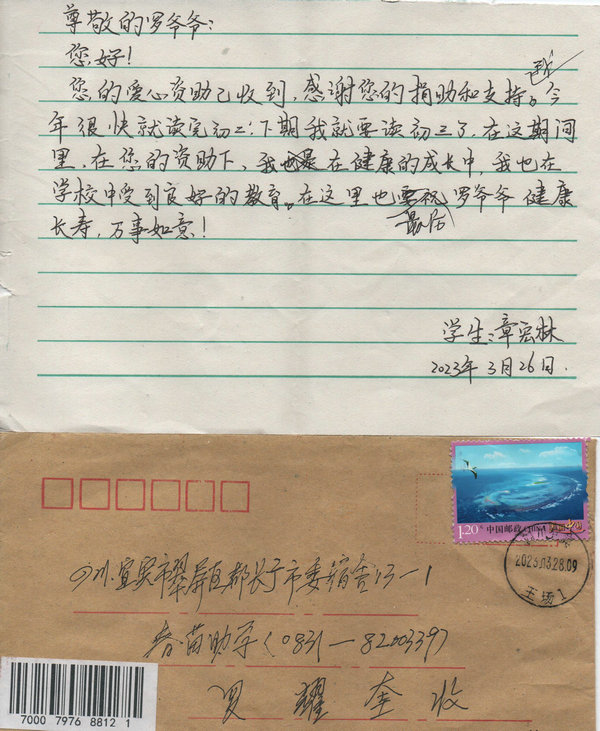 尊敬的罗爷爷：
您好！
您的爱心资助已收到，感谢您的捐助和支持。我今
年很快就读完初二，下期我就要读初三了。在这期间
里，在您的资助下，我是在健康的成长中，我也在
学校中受到良好的教育。在这里也要祝罗爷爷健康
最后
长寿，万事如意！
学生：章宏林
2023年3月26日.
1.20元 中国邮政 CHINA
2023.03.28.09
四川宜宾市翠屏区都长于市委宿舍13－1
春苗助学（0831—8200339）
罗耀奎 收
7000 7976 8812 1